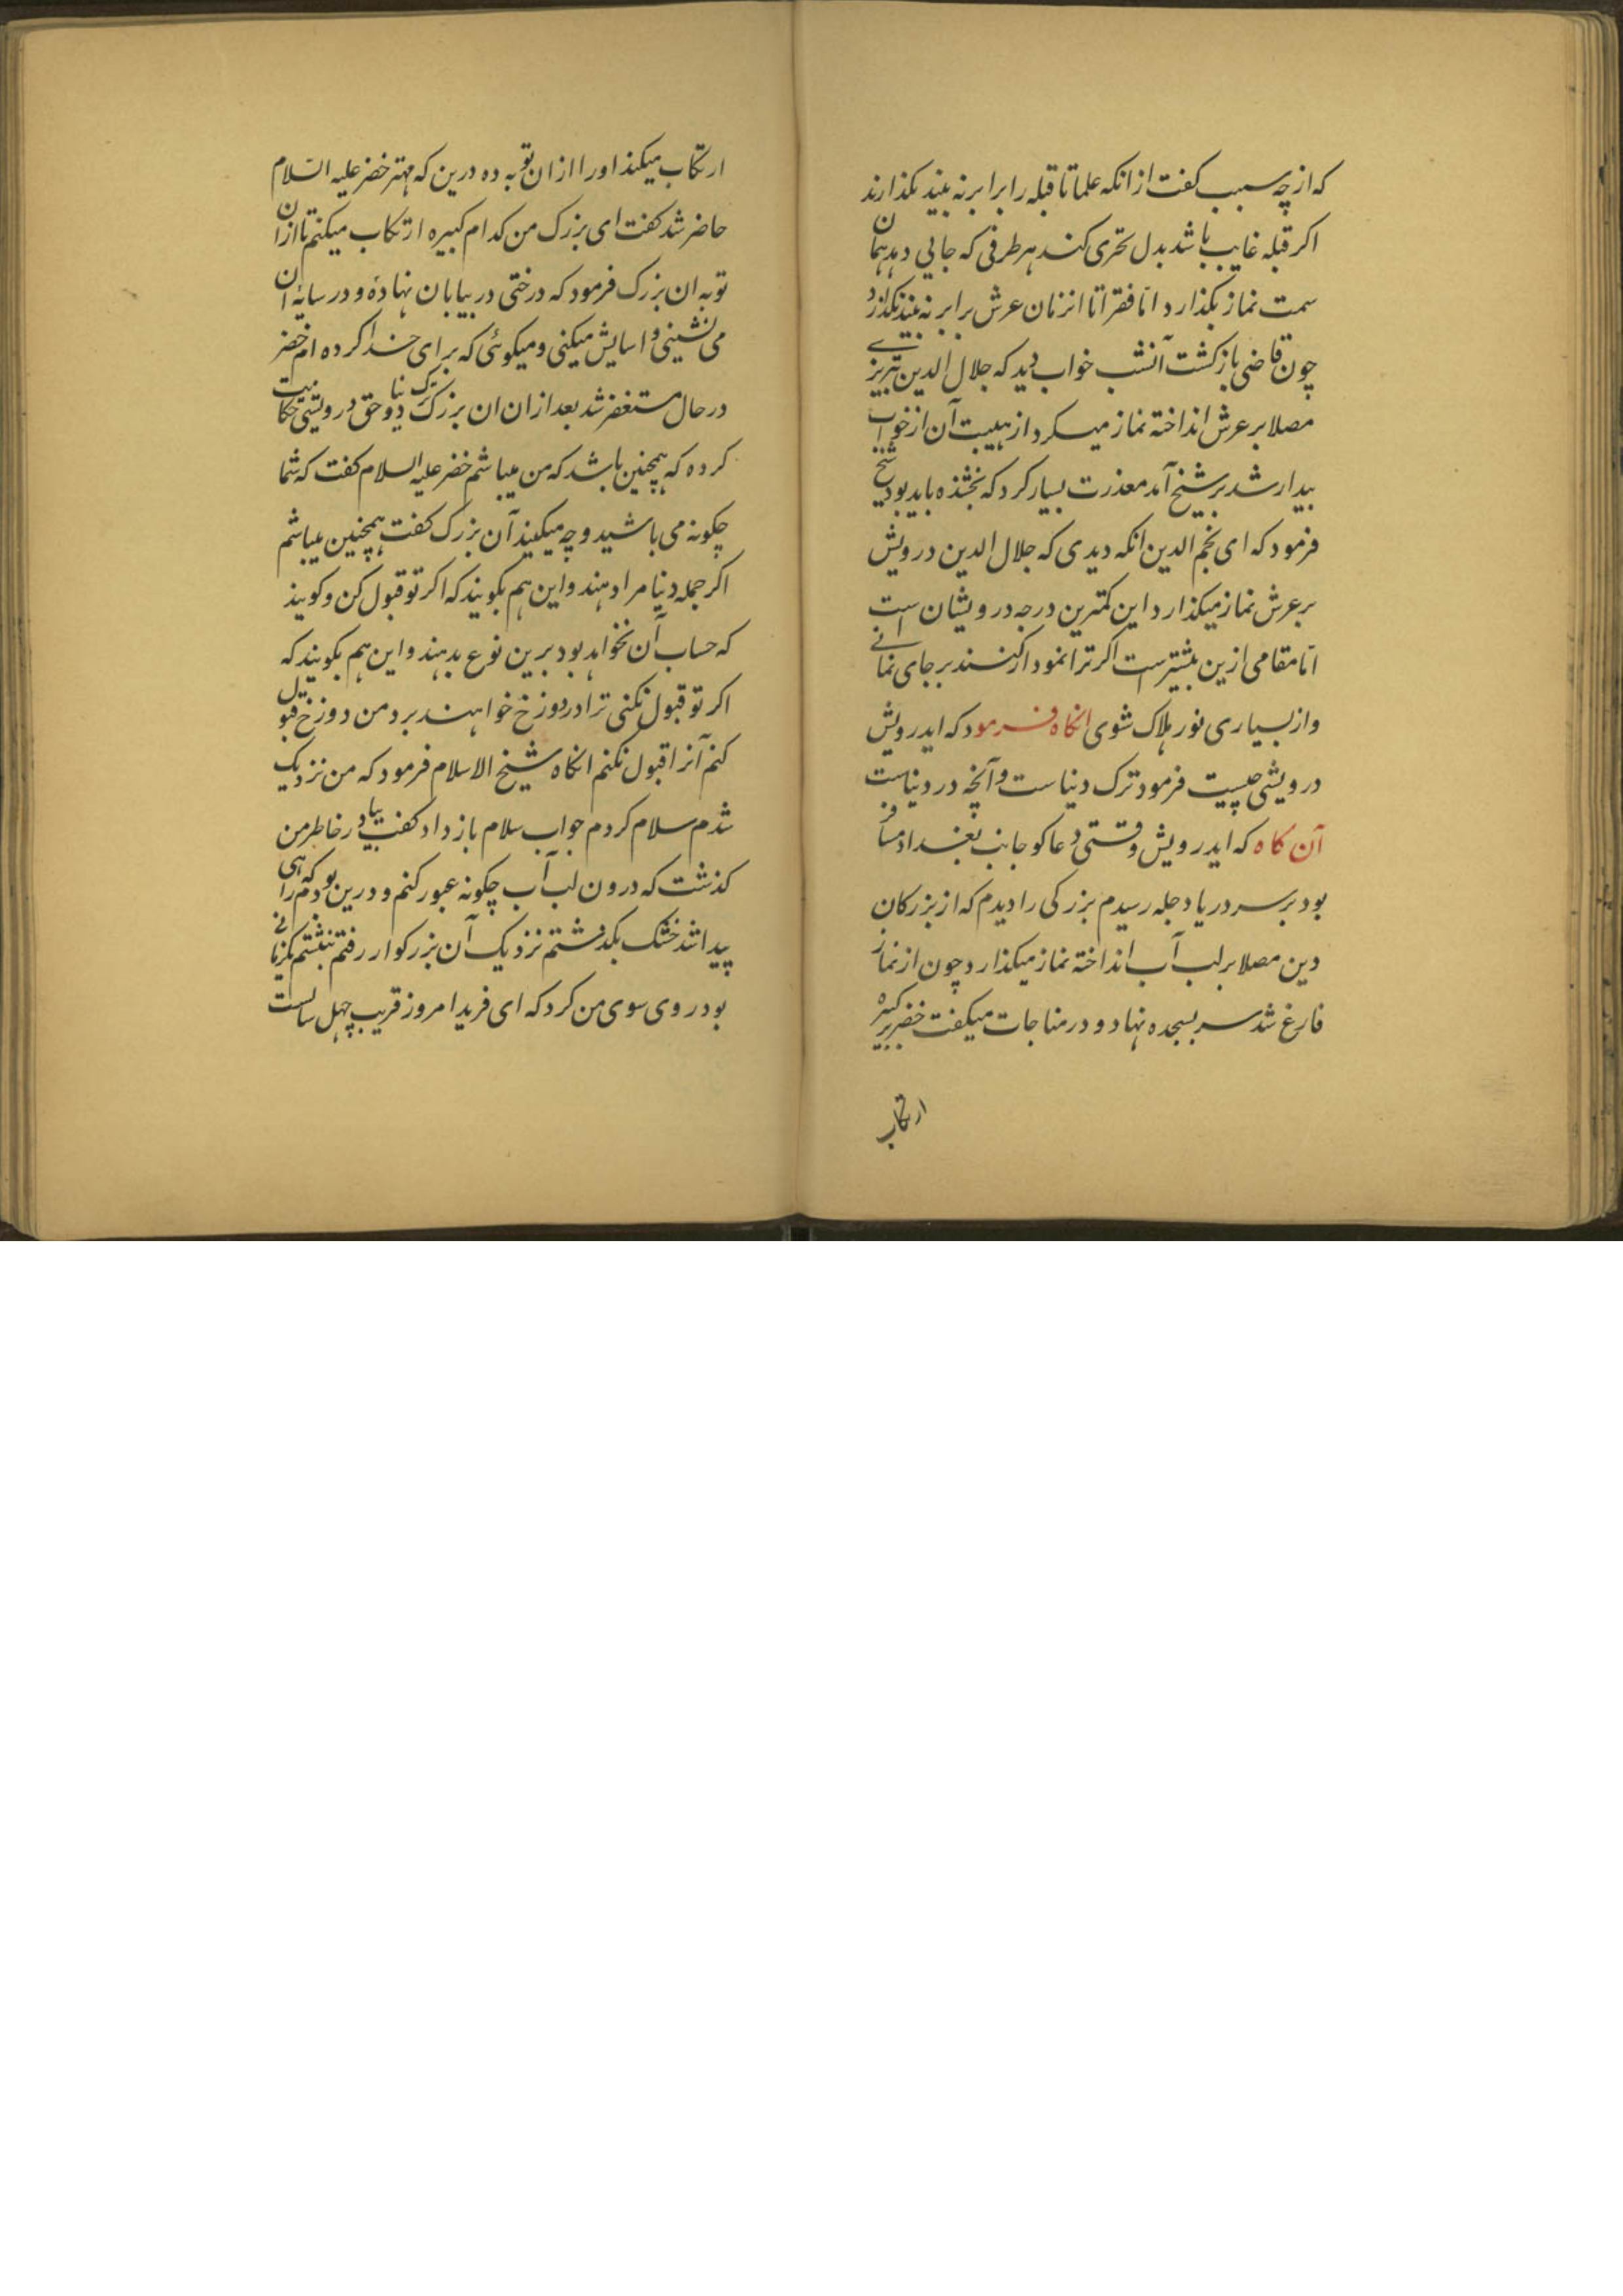 که از چه سبب کفت از انکه علما تا قبله را برابر نه بیند نکذارند
اکر قبله غایب باشد بدل تحری کند هر طرفی که جایی دهد همان
سمت نماز بکذارد اما فقرا تا انزمان عرش برابر نه بیند نکذارد
چون قاضی بازکشت آنشب خواب دید که جلال الدین تبریزی
مصلا بر عرش انداخته نماز میکرد از هیبت آن از خواب
بیدار شد بر شیخ آمد معذرت بسیار کرد که بخشنده باید بود شیخ
فرمود که ای نجم الدین انکه دیدی که جلال الدین درویش
بر عرش نماز میکذارد این کمترین درجه درویشان است
اما مقامی ازین بیشتر است اکر ترا نمودار کنند بر جای نمانی
و از بسیاری نور هلاک شوی انکاه فرمود که ایدرویش
درویشی چیست فرمود ترک دنیاست و آنچه در دنیاست
آن کاه که ایدرویش وقتی دعاکو جانب بغداد مسافر
بود بر سر دریا دجله رسیدم بزرکی را دیدم که از بزرکان
دین مصلا بر لب آب انداخته نماز میکذارد چون از نماز
فارغ شد سر بسجده نهاد و در مناجات میکفت خضر بر کبیره
ارتکاب
ارتکاب میکند او را ازان توبه ده درین که مهتر خضر علیه السلام
حاضر شد کفت ای بزرک من کدام کبیره ارتکاب میکنم تا ازان
توبه ان بزرک فرمود که درختی در بیابان نهاده و در سایهٔ ان
می نشینی و اسایش میکنی و میکوئی که برای خدا کرده ام خضر
در حال مستغفر شد بعد ازان ان بزرک ترک دنیا و حق درویشی حکایت
کرده که همچنین باشد که من میباشم خضر علیه السلام کفت که شما
چکونه می باشید و چه میکنید آن بزرک کفت همچنین میباشم
اکر جمله دنیا مرا دهند و این هم بکویند که اکر تو قبول کن و کویند
که حساب آن نخواهد بود برین نوع بدهند و این هم بکویند که
اکر تو قبول نکنی ترا در دوزخ خواهند برد من دوزخ قبول
کنم آنرا قبول نکنم انکاه شیخ الاسلام فرمود که من نزدیک
شدم سلام کردم جواب سلام باز داد کفت بیا در خاطر من
کذشت که درون لب آب چکونه عبور کنم و درین بودم که راهی
پیدا شد خشک بکذشتم نزدیک آن بزرکوار رفتم بنشستم یکزمانی
بود روی سوی من کرد که ای فرید امروز قریب چهل سالست